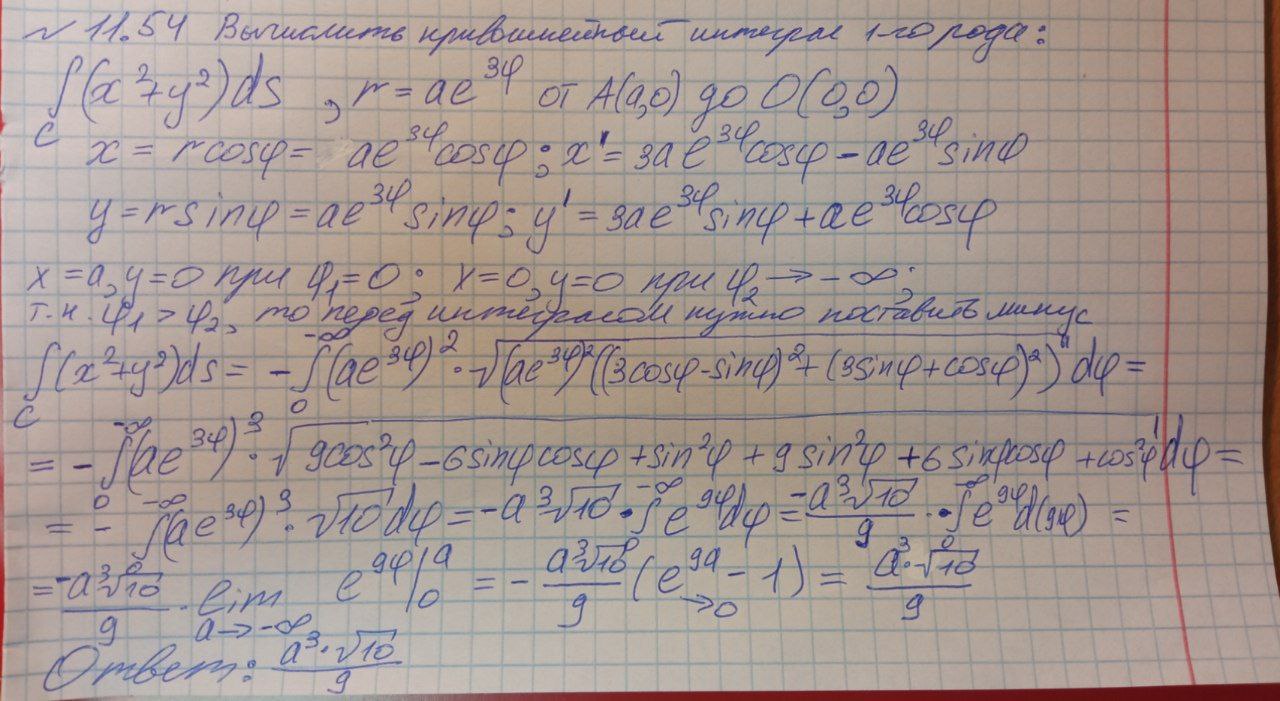 № 11.54 Вычислить криволинейный интеграл 1-го рода:
∫_C (x²+y²)ds , r = ae^{3φ} от A(a,0) до O(0,0)
x = r cosφ = ae^{3φ}cosφ ; x' = 3ae^{3φ}cosφ − ae^{3φ}sinφ
y = r sinφ = ae^{3φ}sinφ ; y' = 3ae^{3φ}sinφ + ae^{3φ}cosφ
x = a, y = 0 при φ₁ = 0 ; x = 0, y = 0 при φ₂ → −∞ ;
т.к. φ₁ > φ₂, то перед интегралом нужно поставить минус
∫_C (x²+y²)ds = − ∫_0^{−∞} (ae^{3φ})² · √((ae^{3φ})²((3cosφ−sinφ)² + (3sinφ+cosφ)²)) dφ =
= − ∫_0^{−∞} (ae^{3φ})³ · √(9cos²φ − 6sinφcosφ + sin²φ + 9sin²φ + 6sinφcosφ + cos²φ) dφ =
= − ∫_0^{−∞} (ae^{3φ})³ · √10 dφ = −a³√10 · ∫_0^{−∞} e^{9φ}dφ = (−a³√10)/9 · ∫_0^{−∞} e^{9φ}d(9φ) =
= (−a³√10)/9 · lim_{a→−∞} e^{9φ}|_0^a = − (a³√10)/9 (e^{9a}_{→0} − 1) = (a³·√10)/9
Ответ: (a³·√10)/9